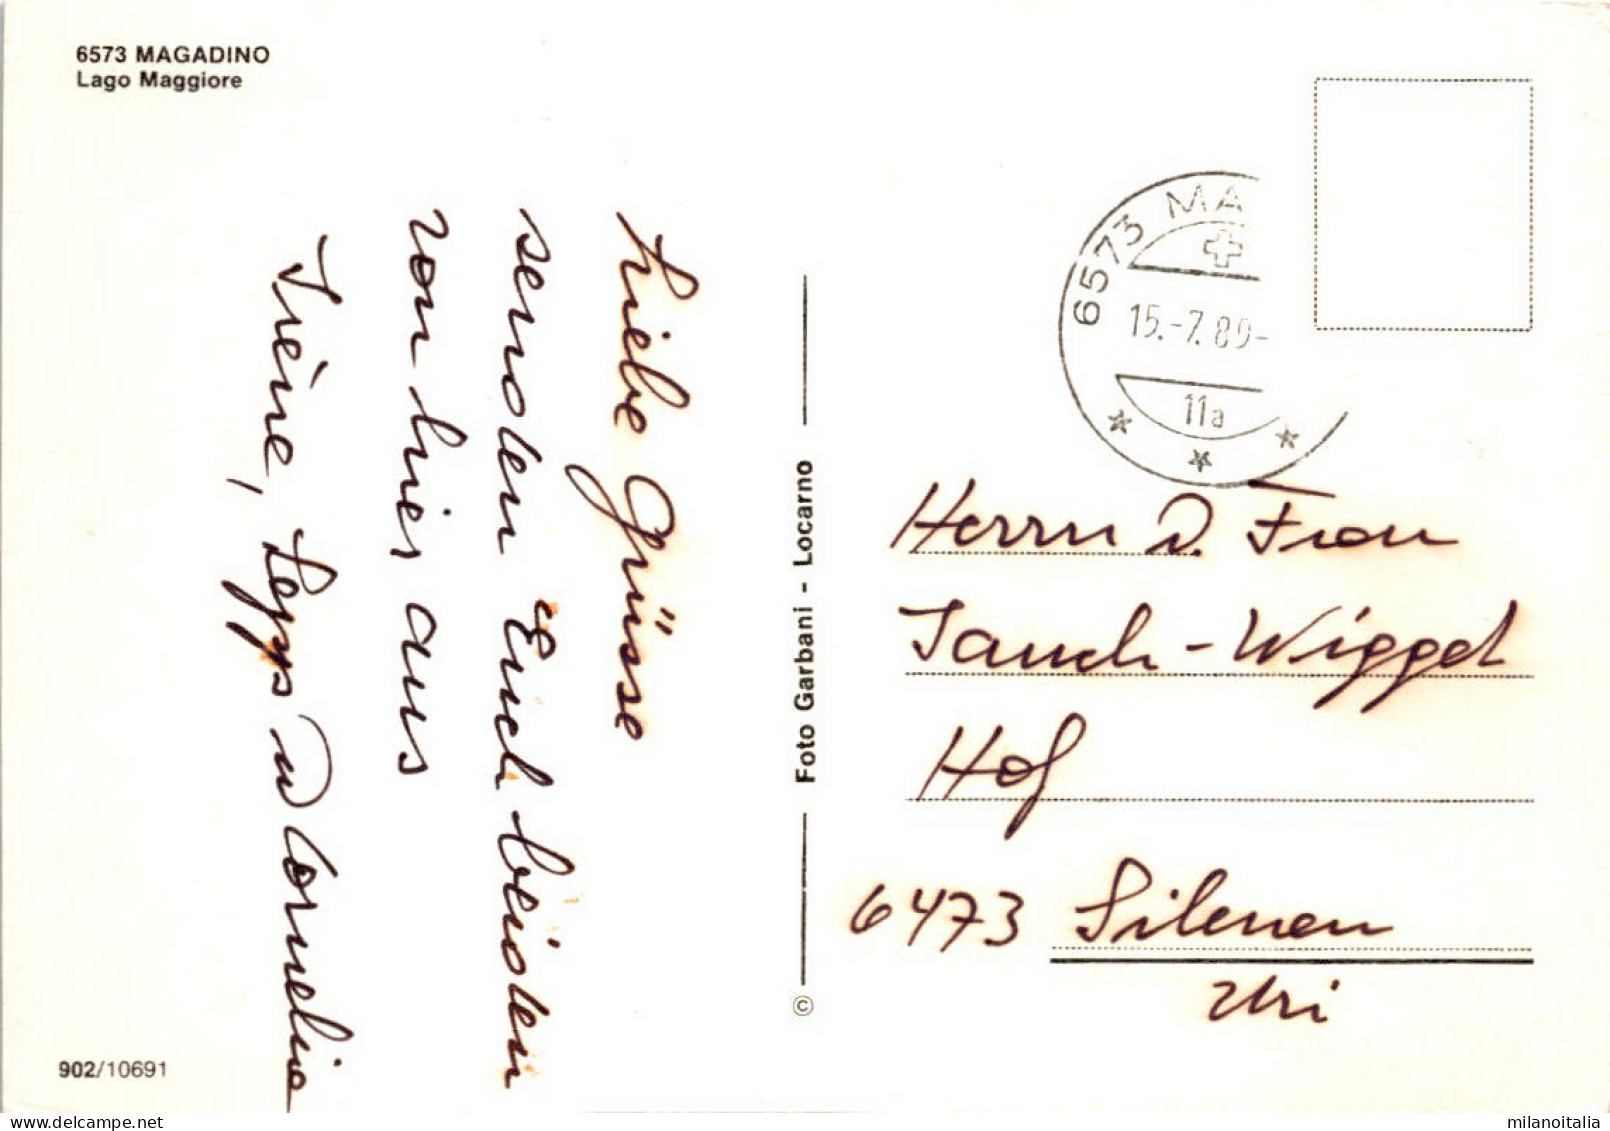 6573 MAGADINO
Lago Maggiore
Liebe Grüsse
senden Euch beiden
von hier aus
Irène, Seppi u Cornelia
Foto Garbani - Locarno
©
902/10691
6573 MA
15.-7.89-
11a
Herrn u. Frau
Jauch-Wiggel
Hof
6473 Silenen
Uri
milanoitalia